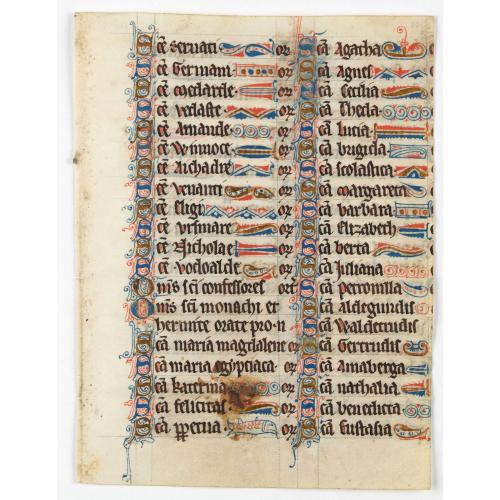 Sce Servaci or
Sce Germani or
Sce Medarde or
Sce Vedaste or
Sce Amande or
Sce Winnoce or
Sce Aichadre or
Sce Venanti or
Sce Eligi or
Sce Vrsmare or
Sce Nicholae or
Sce Vodoalde or
Oms sci confessores ort
Oms sci monachi et
herimite orate pro n
Sca maria magdalene or
Sca maria egyptiaca or
Sca Katerina or
Sca felicitas or
Sca ppetua or
Sca Agatha
Sca Agnes
Sca Cecilia
Sca Thecla
Sca Lucia
Sca brigida
Sca scolastica
Sca margareta
Sca barbara
Sca Elizabeth
Sca berta
Sca Juliana
Sca petronilla
Sca aldegundis
Sca Waldetrudis
Sca Gertrudis
Sca Amaberga
Sca nathalia
Sca benedicta
Sca Eustasia